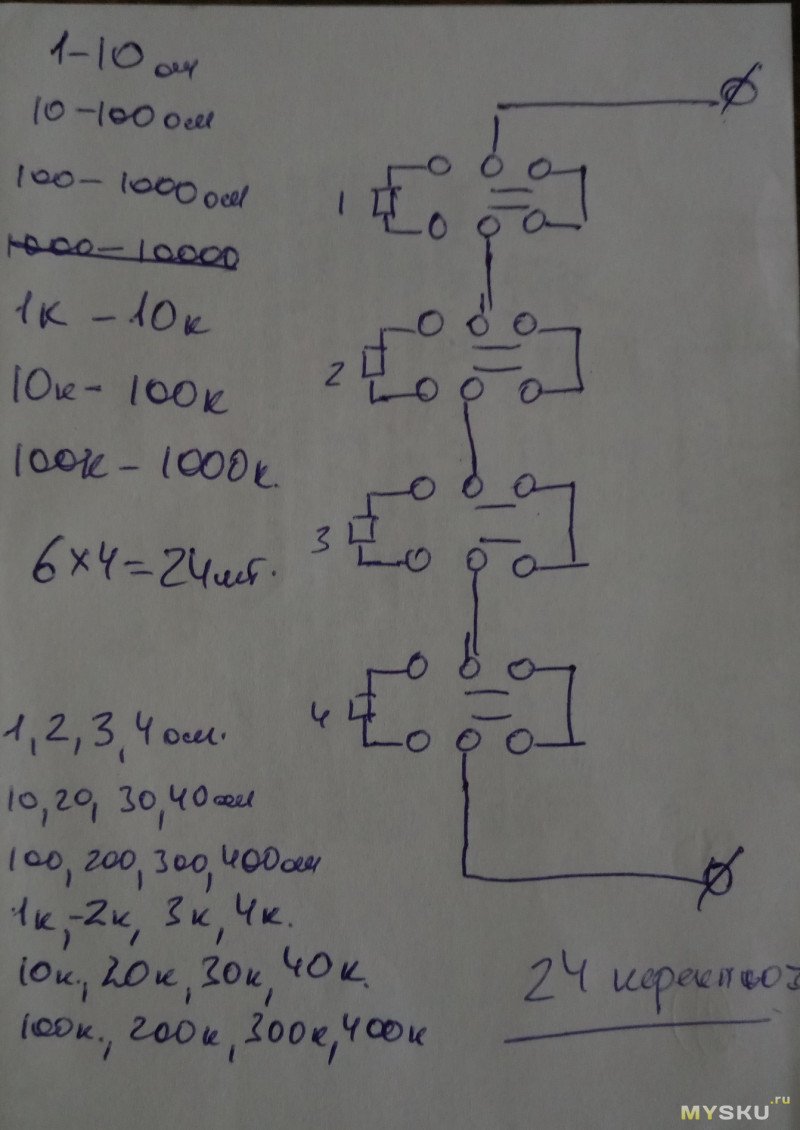 1-10 ом
10-100 ом
100-1000 ом
1000-10000
1к-10к
10к-100к
100к-1000к.
6×4=24шт.
1
2
3
4
1, 2, 3, 4 ом.
10, 20, 30, 40 ом
100, 200, 300, 400 ом
1к, 2к, 3к, 4к.
10к., 20к, 30к, 40к.
100к., 200к, 300к, 400к
24
MYSKU.ru